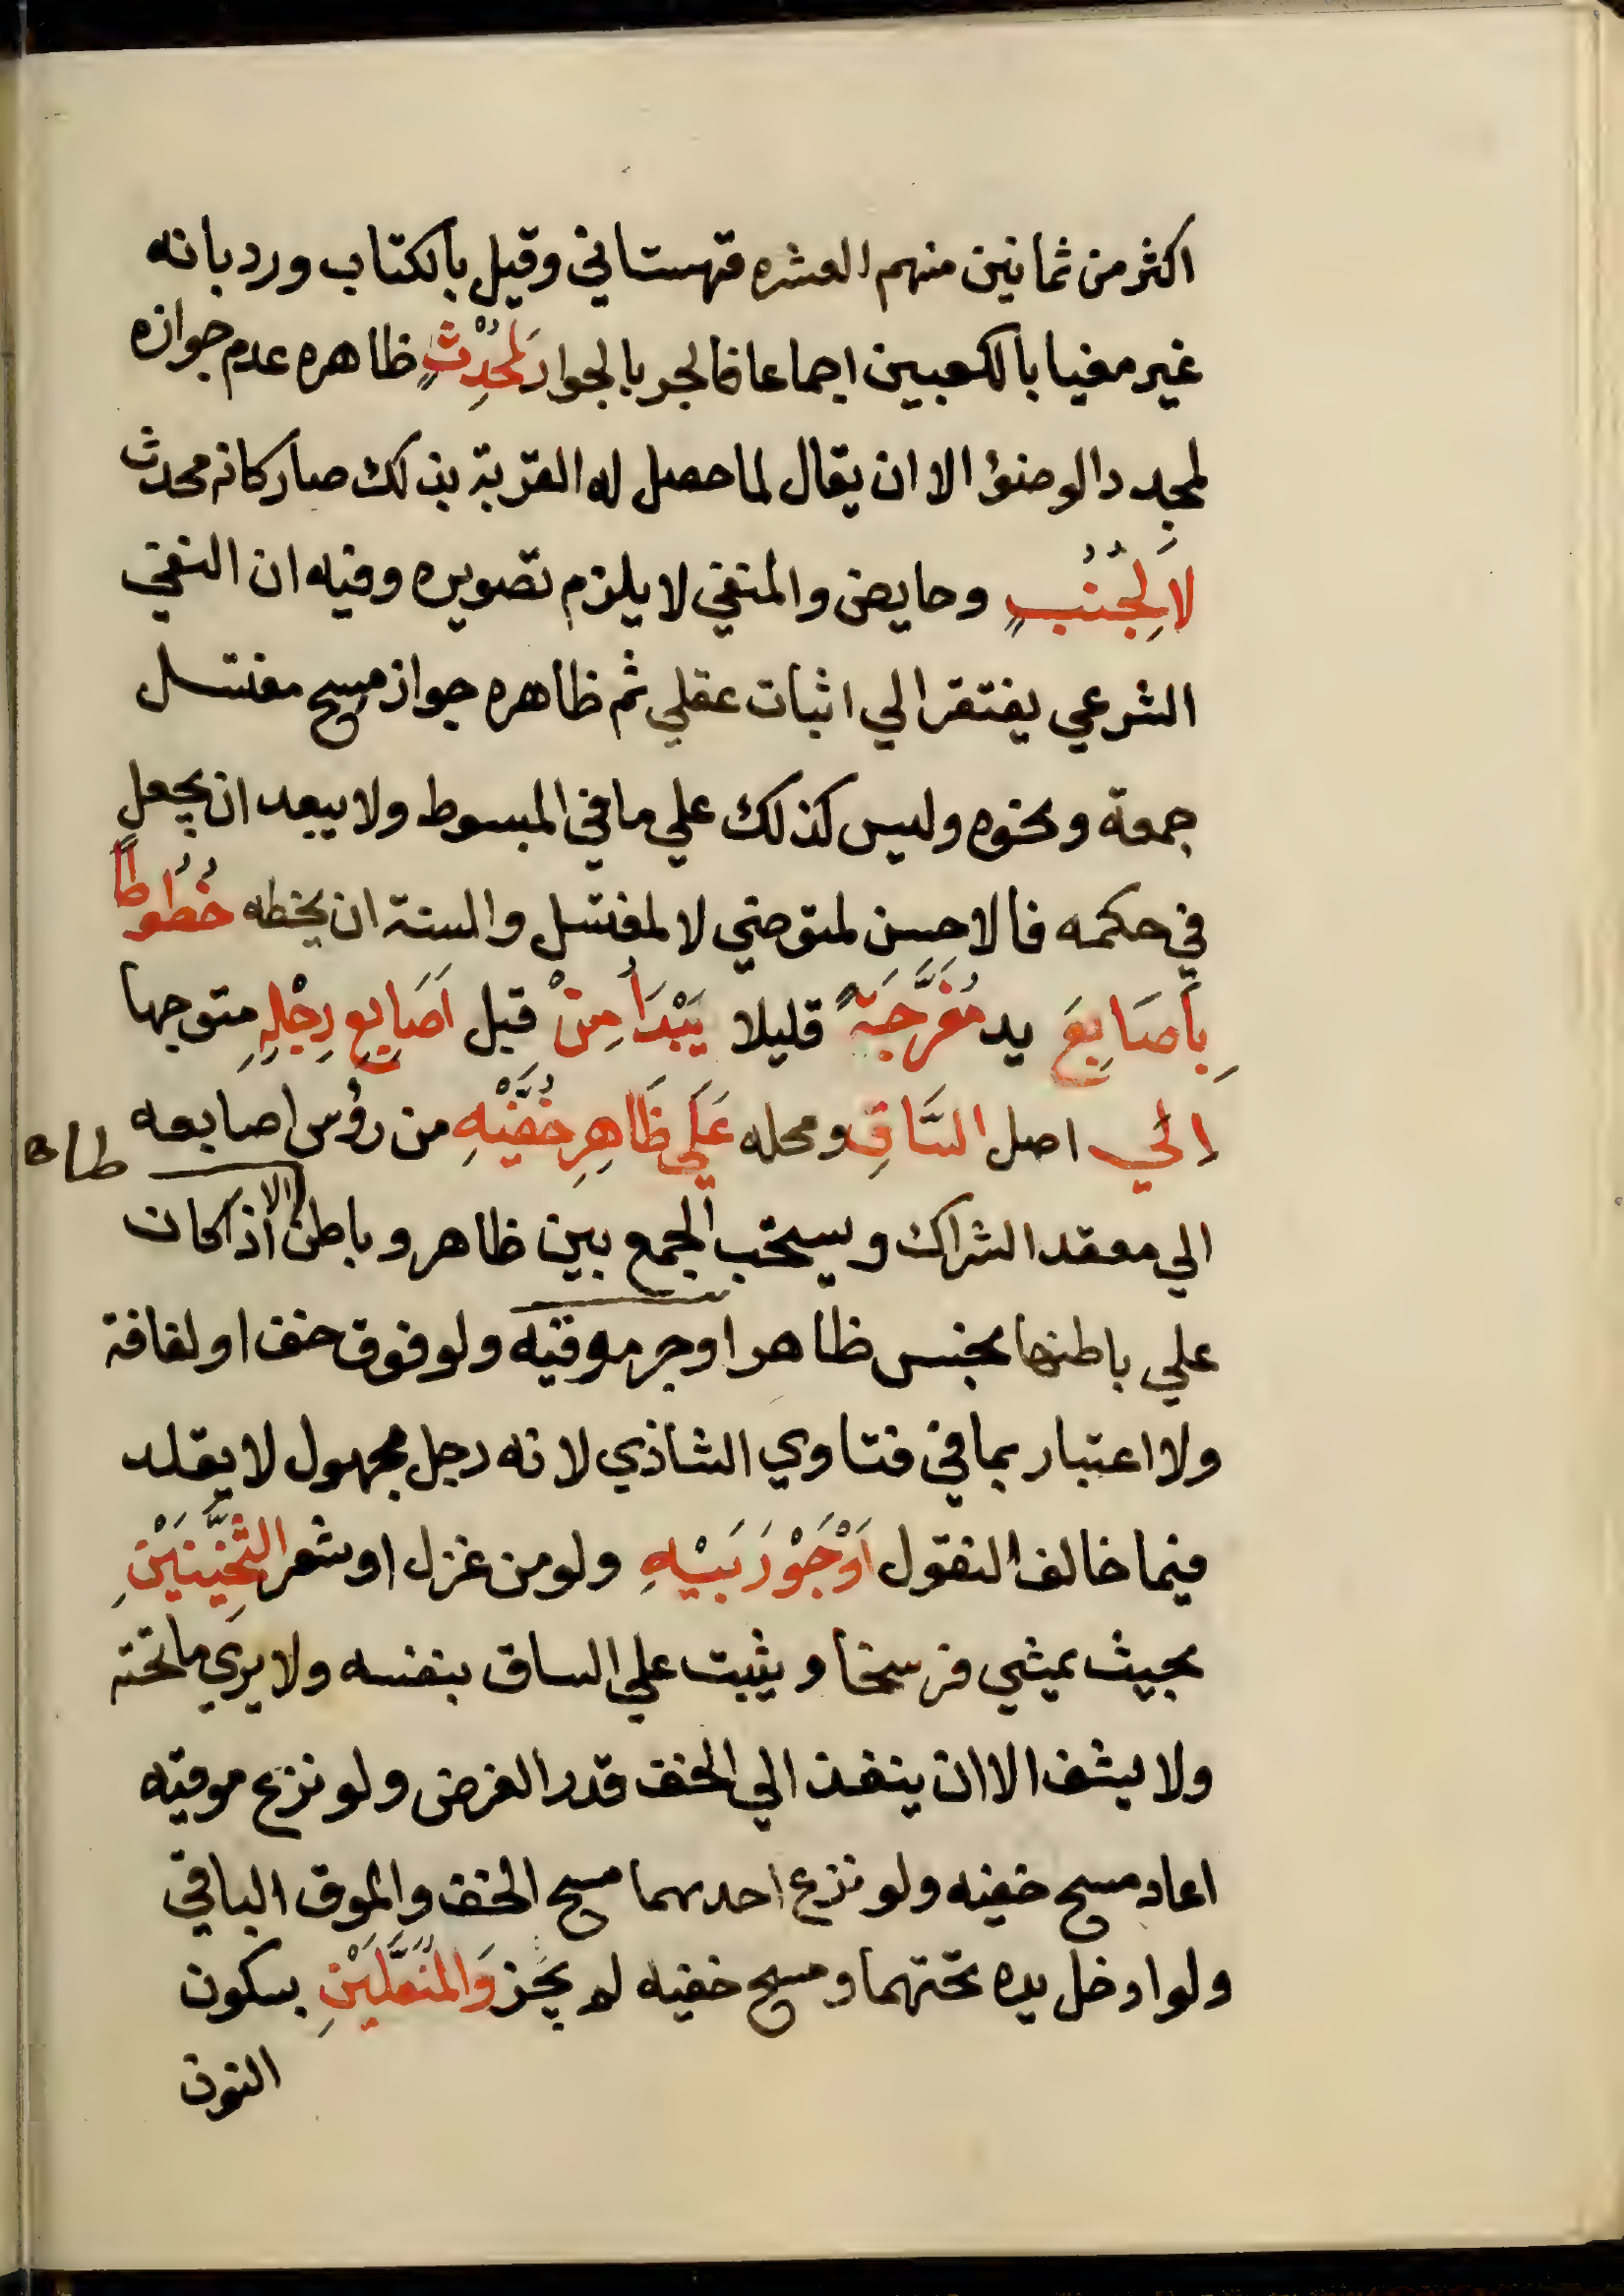 اكثر من ثمانين منهم العشره قهستاني وقيل بالكتاب ورد بانه
غير مغيا بالكعبين اجماعا فالجر بالجوار لِمُحْدِثٍ ظاهره عدم جوازه
لمجدد الوضؤ الا ان يقال لما حصل له القربة بذلك صار كانه محدث
لَا لِجُنُبٍ وحايض والمنفي لا يلزم تصويره وفيه ان النفي
الشرعي يفتقر الي اثبات عقلي ثم ظاهره جواز مسح مغتسل
جمعة ونحوه وليس كذلك علي ما في المبسوط ولا يبعد ان يجعل
في حكمه فالاحسن لمتوضي لا لمغتسل والسنة ان يخطه خُطُوطًا
بِأَصَابِعَ يد مُفَرَّجَةً قليلا يَبْدَأُ مِنْ قبل اَصَابِعِ رِجْلِهِ متوجها
اِلي اصل السَّاقِ ومحله عَلَي ظَاهِرِ خُفَّيْهِ من رؤس اصابعه
ط ه
الي معقد الشراك ويستحب الجمع بين ظاهر وباطن الا اذا كان
علي باطنها نجس ظاهر او جرموقيه ولو فوق خف او لفافة
ولا اعتبار بما في فتاوي الشاذي لانه رجل مجهول لا يقلد
فيما خالف النقول اَوْ جَوْرَبَيْهِ ولو من غزل او شعر الثَّخِينَيْنِ
بحيث يمشي فرسخا ويثبت علي الساق بنفسه ولا يري ما تحته
ولا يشف الا ان ينفذ الي الخف قدر الغرض ولو نزع موقيه
اعاد مسح خفيه ولو نزع احدهما مسح الخف والموق الباقي
ولو ادخل يده تحتهما ومسح خفيه لم يجز وَالْمُنَعَّلَيْنِ بسكون
النون